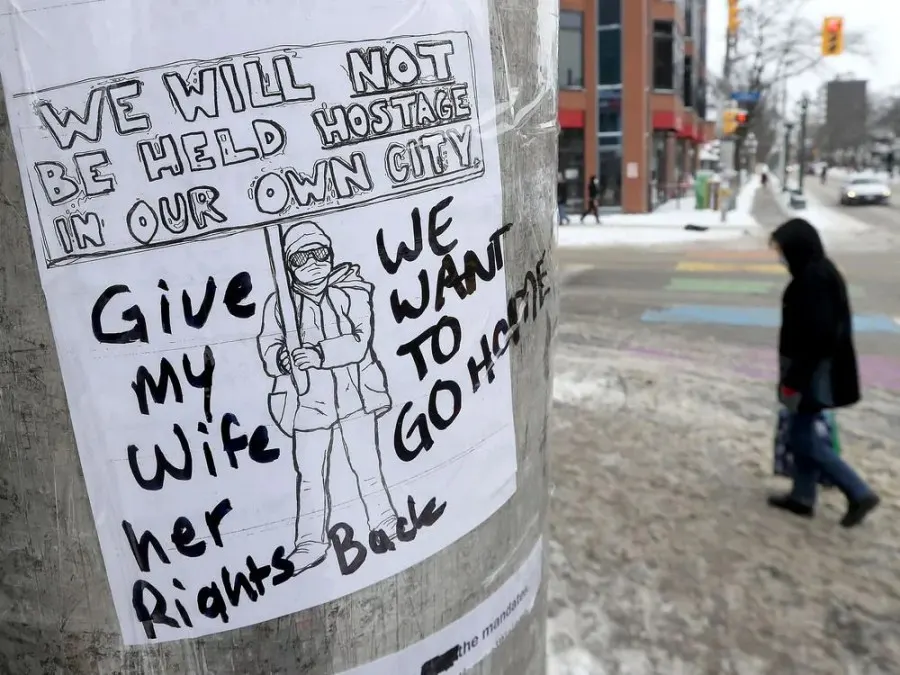 WE WILL NOT
BE HELD HOSTAGE
IN OUR OWN CITY.
Give
my
Wife
her
Rights Back
WE
WANT
TO
GO HOME
the mandates